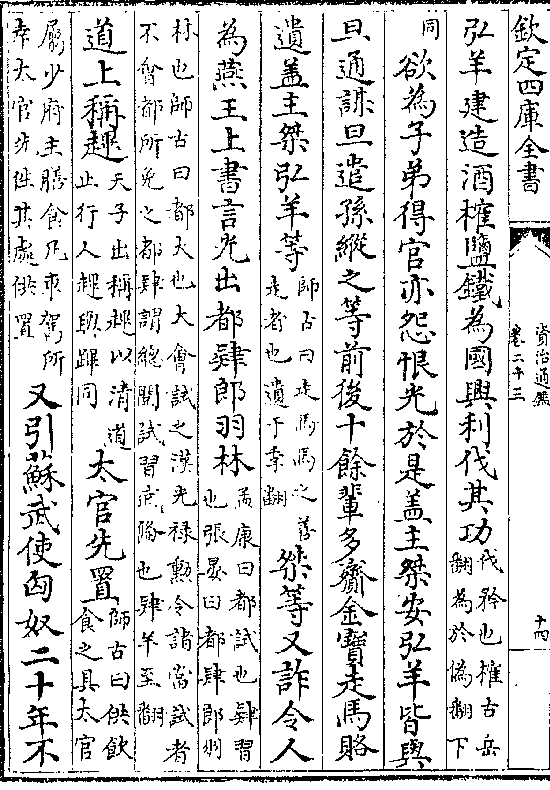 欽定四庫全書
資治通鑑
卷二十三
十四
弘羊建造酒榷鹽鐵為國興利伐其功伐矜也榷古岳翻為於偽翻下
同欲為子弟得官亦怨恨光於是蓋主桀安弘羊皆與
旦通謀旦遣孫縱之等前後十餘輩多齎金寶走馬賂
遺蓋主桀弘羊等師古曰走馬馬之善走者也遺于季翻桀等又詐令人
為燕王上書言光出都肄郎羽林孟康曰都試也肄習也張晏曰都肄郎羽
林也師古曰都大也大會試之漢光祿勳令諸當試者不會都所免之都肄謂總閱試習武備也肄羊至翻
道上稱趩天子出稱趩以清道止行人趩與蹕同太官先置師古曰供飲食之具太官
屬少府主膳食凡車駕所幸太官先往其處供置又引蘇武使匈奴二十年不